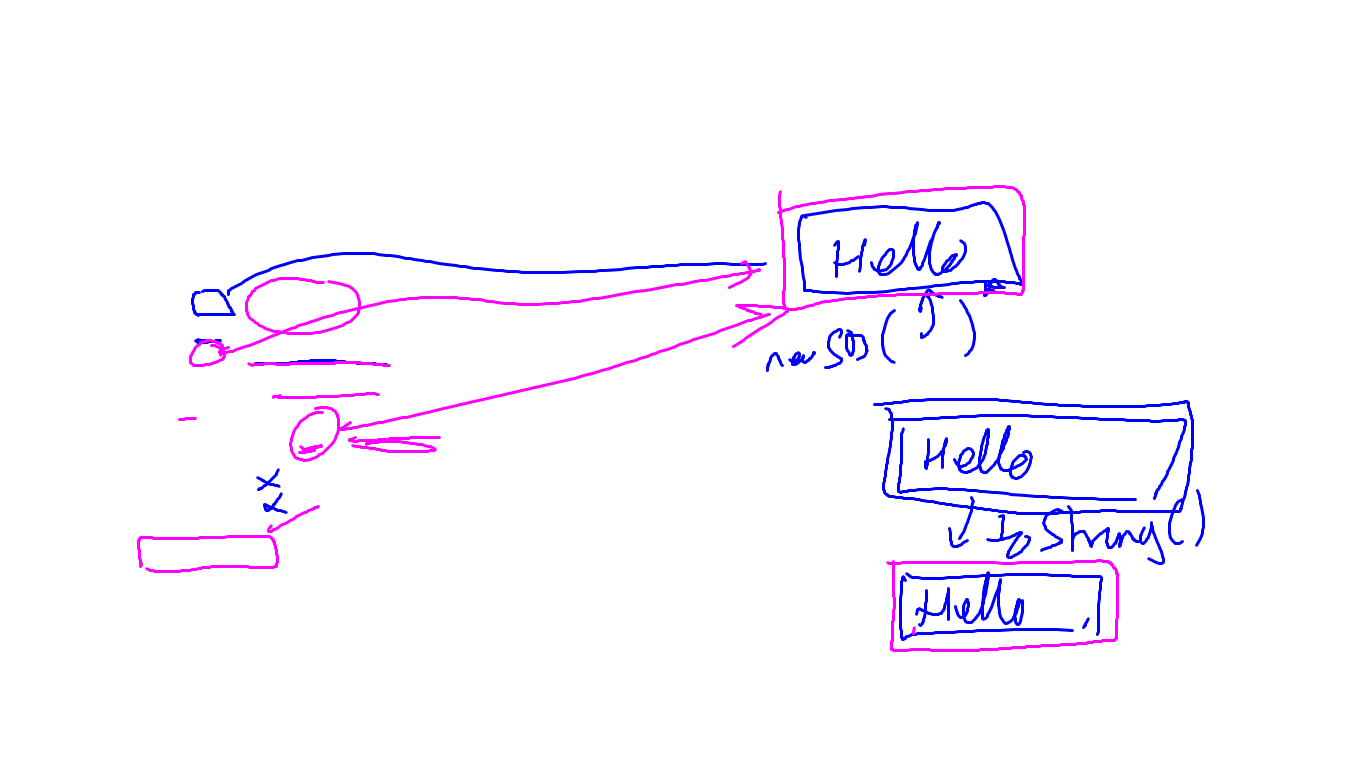 Hello
new SB ( )
Hello
To String()
Hello